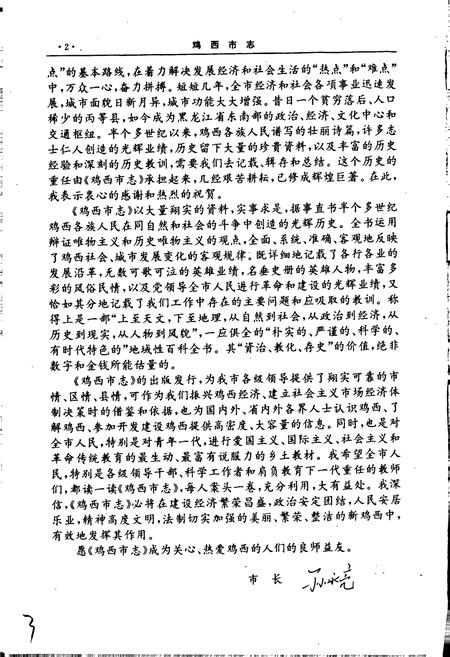 ·2· 鸡西市志
点”的基本路线，在着力解决发展经济和社会生活的“热点”和“难点”
中，万众一心，奋力拼搏。短短几年，全市经济和社会各项事业迅速发
展，城市面貌日新月异，城市功能大大增强。昔日一个贫穷落后、人口
稀少的丙等县，如今成为黑龙江省东南部的政治、经济、文化中心和
交通枢纽。半个多世纪以来，鸡西各族人民谱写的壮丽诗篇，许多志
士仁人创造的光辉业绩，历史留下大量的珍贵资料，以及丰富的历史
经验和深刻的历史教训，需要我们去记载、辑存和总结。这个历史的
重任由《鸡西市志》承担起来，几经艰苦耕耘，已修成辉煌巨著。在此，
我表示衷心的感谢和热烈的祝贺。
《鸡西市志》以大量翔实的资料，实事求是，据事直书半个多世纪
鸡西各族人民在同自然和社会的斗争中创造的光辉历史。全书运用
辩证唯物主义和历史唯物主义的观点，全面、系统、准确、客观地反映
了鸡西社会、城市发展变化的客观规律。既详细地记载了各行各业的
发展沿革，无数可歌可泣的英雄业绩，名垂史册的英雄人物，丰富多
彩的风俗民情，以及党领导全市人民进行革命和建设的光辉业绩，又
恰如其分地记载了我们工作中存在的主要问题和应吸取的教训。称
得上是一部“上至天文，下至地理，从自然到社会，从政治到经济，从
历史到现实，从人物到风貌”，一应俱全的“朴实的、严谨的、科学的、
有时代特色的”地域性百科全书。其“资治、教化、存史”的价值，绝非
数字和金钱所能估量的。
《鸡西市志》的出版发行，为我市各级领导提供了翔实可靠的市
情、区情、县情，可作为我们振兴鸡西经济、建立社会主义市场经济体
制决策时的借鉴和依据，也为国内外、省内外各界人士认识鸡西、了
解鸡西、参加开发建设鸡西提供高密度、大容量的信息。同时，也是对
全市人民，特别是对青年一代，进行爱国主义、国际主义、社会主义和
革命传统教育的最生动、最富有说服力的乡土教材。我希望全市人
民，特别是各级领导干部、科学工作者和肩负教育下一代重任的教师
们，都读一读《鸡西市志》，每人案头一卷，充分利用，大有益处。我深
信，《鸡西市志》必将在建设经济繁荣昌盛，政治安定团结，人民安居
乐业，精神高度文明，法制切实加强的美丽、繁荣、整洁的新鸡西中，
有效地发挥其作用。
愿《鸡西市志》成为关心、热爱鸡西的人们的良师益友。
市 长
3